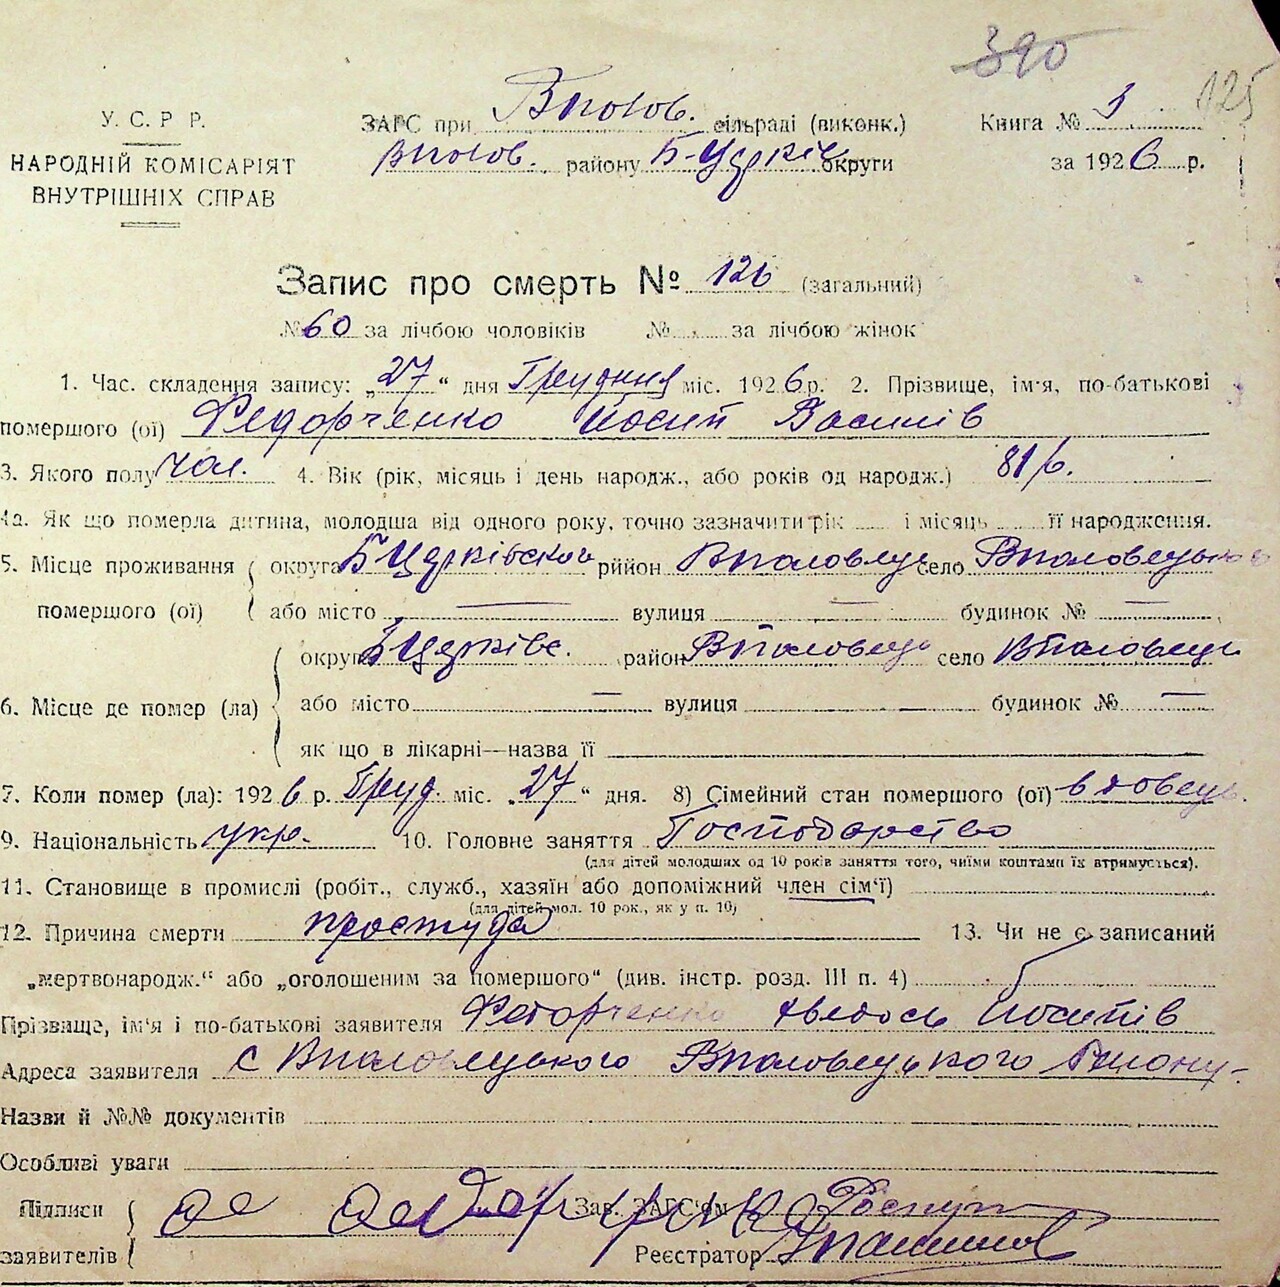 390
125
У. С. Р Р.
НАРОДНІЙ КОМІСАРІЯТ
ВНУТРІШНІХ СПРАВ
ЗАГС при Вполов. сільраді (виконк.)
Вполов. району Б-Церків округи
Книга № 3
за 1926 р.
Запис про смерть № 126 (загальний)
№ 60 за лічбою чоловіків № за лічбою жінок
1. Час. складення запису: „27“ дня Грудния міс. 1926 р. 2. Прізвище, ім'я, по-батькові
помершого (ої) Федорченко Йосип Василів
3. Якого полу чол. 4. Вік (рік, місяць і день народж., або років од народж.) 81 р.
4а. Як що померла дитина, молодша від одного року, точно зазначити рік і місяць її народження.
5. Місце проживання округа Б Церківской рийон Вполовець село Вполовецьког
помершого (ої) або місто — вулиця — будинок № —
округ Б Церківс. район Вполовець село Вполовеци
6. Місце де помер (ла) або місто — вулиця — будинок № —
як що в лікарні—назва її
7. Коли помер (ла): 1926 р. Груд. міс. „27“ дня. 8) Сімейний стан помершого (ої) вдовець.
9. Національність укр. 10. Головне заняття Господарство
(для дітей молодших од 10 років заняття того, чиїми коштами їх втримується).
11. Становище в промислі (робіт., служб., хазяїн або допоміжний член сім'ї)
(для дітей мол. 10 рок., як у п. 10)
12. Причина смерти простуда 13. Чи не є записаний
„мертвонародж.“ або „оголошеним за помершого“ (див. інстр. розд. III п. 4)
Прізвище, ім'я і по-батькові заявителя Федорченко Йосипів
Адреса заявителя с Вполовецького Вполовецького Району-
Назви й №№ документів
Особливі уваги
Підписи
заявителів
Зав. ЗАГС'ом
Реєстратор